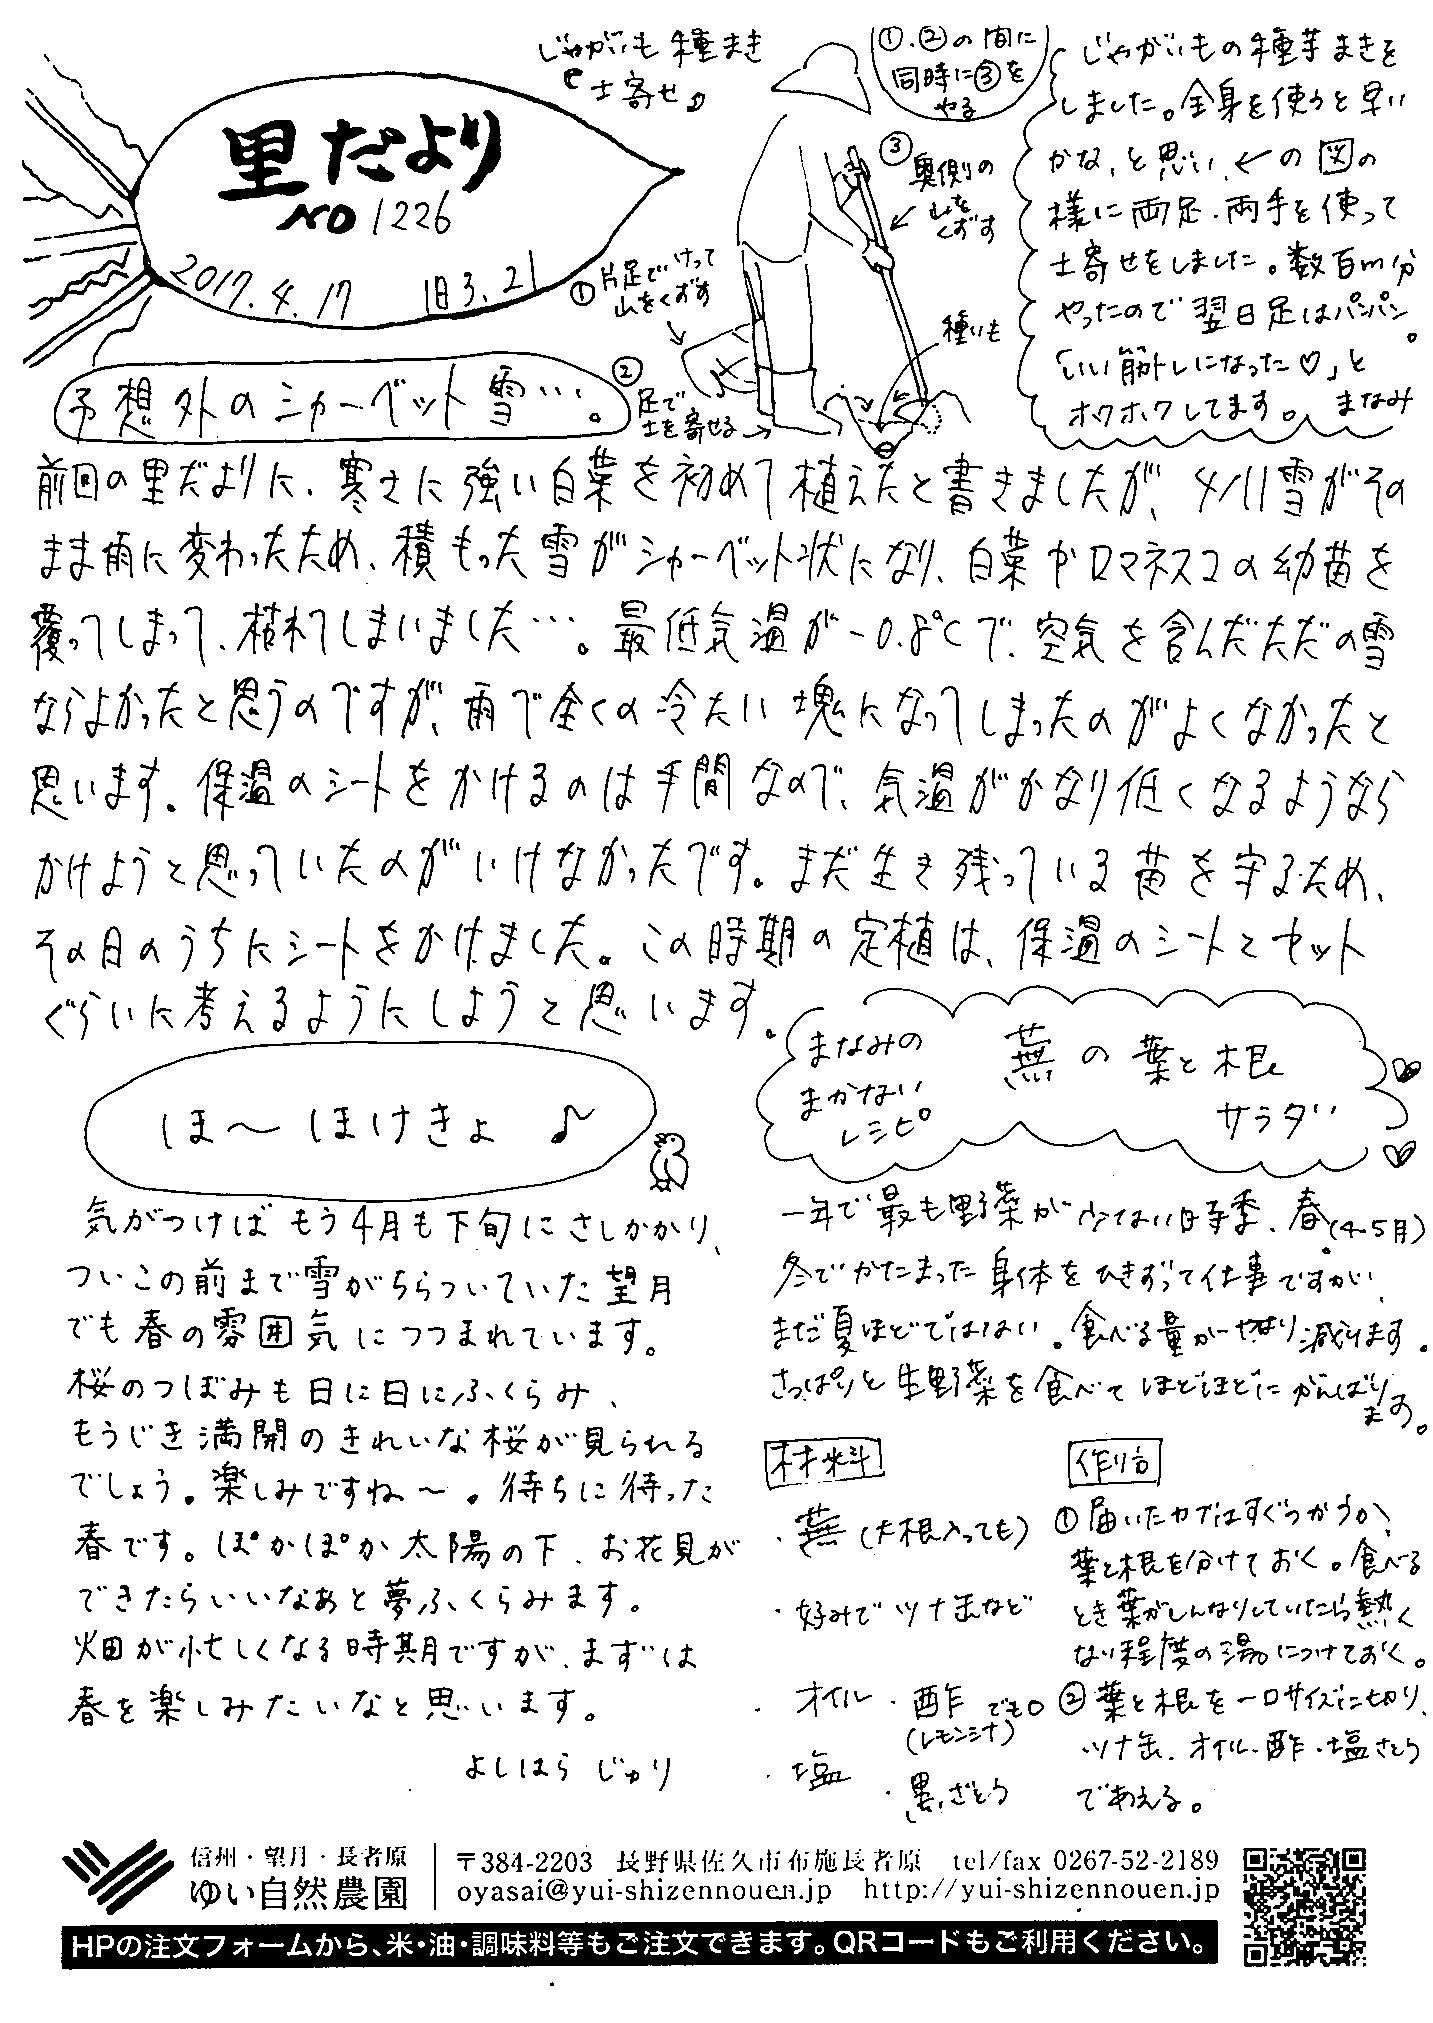 里だより
NO 1226
2017.4.17 旧3.21
じゃがいも種まき
『土寄せ』
①.②の間に
同時に③を
やる
③奥側の
山を
くずす
①片足でけって
山をくずす
種いも
②足で
土を寄せる
じゃがいもの種芋まきを
しました。全身を使うと早い
かな、と思い、←の図の
様に両足・両手を使って
土寄せをしました。数百m分
やったので翌日足はパンパン。
「いい筋トレになった♡」と
ホクホクしてます。 まなみ
予想外のシャーベット雪…。
前回の里だよりに、寒さに強い白菜を初めて植えたと書きましたが、4/11雪がその
まま雨に変わったため、積もった雪がシャーベット状になり、白菜やロマネスコの幼苗を
覆ってしまって、枯れてしまいました…。最低気温が-0.8℃で、空気を含んだただの雪
ならよかったと思うのですが、雨で全くの冷たい塊になってしまったのがよくなかったと
思います。保温のシートをかけるのは手間なので、気温がかなり低くなるようなら
かけようと思っていたのがいけなかったです。まだ生き残っている苗を守るため、
その日のうちにシートをかけました。この時期の定植は、保温のシートとセット
ぐらいに考えるようにしようと思います。
ほ〜ほけきょ ♪
気がつけばもう4月も下旬にさしかかり、
ついこの前まで雪がちらついていた望月
でも春の雰囲気につつまれています。
桜のつぼみも日に日にふくらみ、
もうじき満開のきれいな桜が見られる
でしょう。楽しみですね〜。待ちに待った
春です。ぽかぽか太陽の下、お花見が
できたらいいなあと夢ふくらみます。
畑が忙しくなる時期ですが、まずは
春を楽しみたいなと思います。
よしはら じゅり
まなみの
まかない
レシピ
蕪の葉と根
サラダ
一年で最も野菜が少ない時季、春(4-5月)。
冬でかたまった身体をひきずって仕事ですが、
まだ夏ほどではない。食べる量がやはり減ります。
さっぱりと生野菜を食べてほどほどにがんばります。
材料
・蕪(大根入っても)
・好みでツナ缶など
・オイル ・酢(レモン汁)でもO
・塩 ・黒ざとう
作り方
①届いたカブはすぐつかうか、
葉と根を分けておく。食べる
とき葉がしんなりしていたら熱く
ない程度の湯につけておく。
②葉と根を一口サイズに切り、
ツナ缶、オイル・酢・塩さとう
であえる。
信州・望月・長者原
ゆい自然農園
〒384-2203 長野県佐久市布施長者原 tel/fax 0267-52-2189
oyasai@yui-shizennouen.jp http://yui-shizennouen.jp
HPの注文フォームから、米・油・調味料等もご注文できます。QRコードもご利用ください。